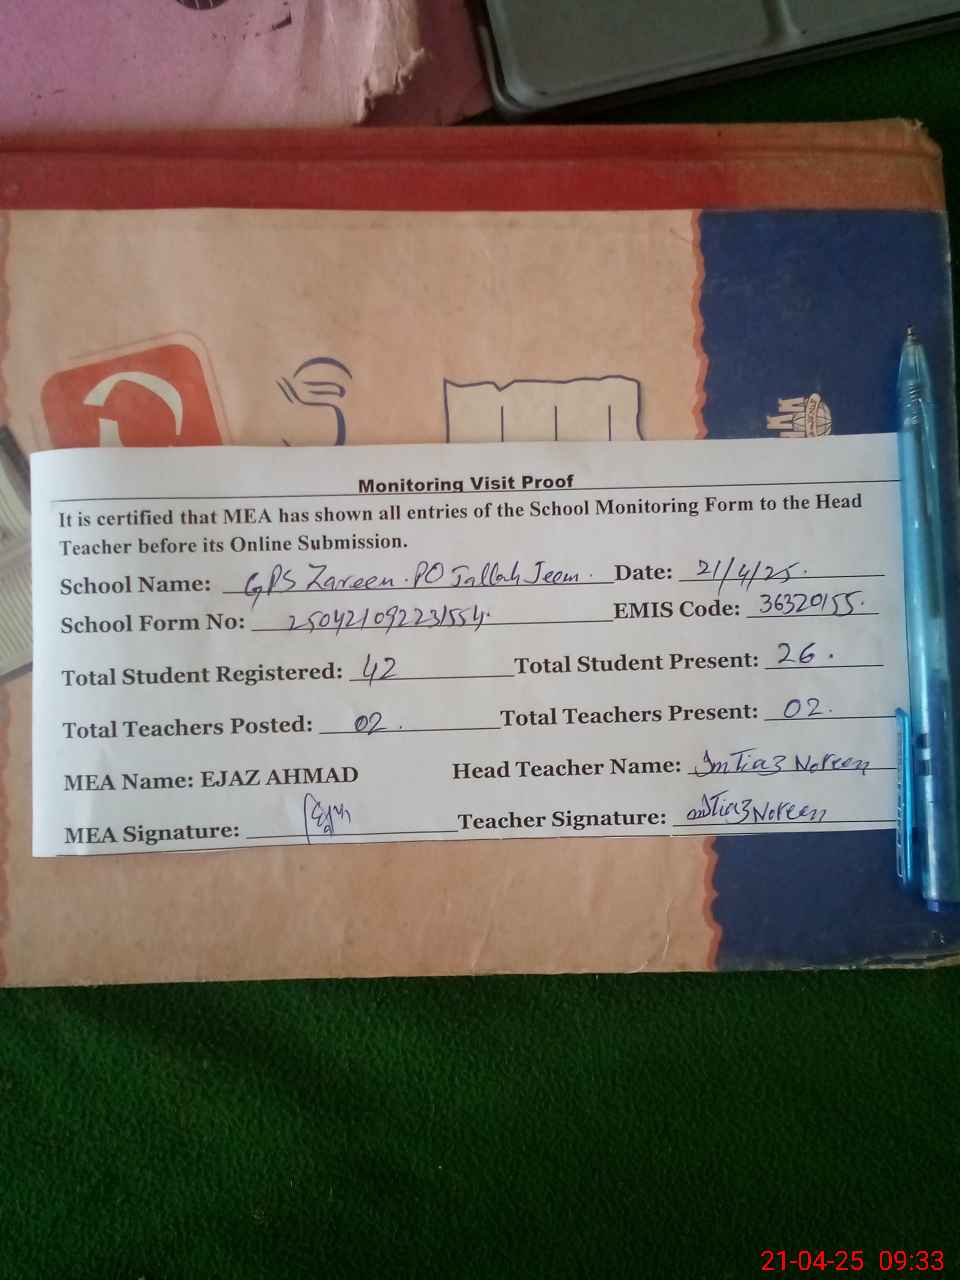 Monitoring Visit Proof
It is certified that MEA has shown all entries of the School Monitoring Form to the Head
Teacher before its Online Submission.
School Name: GPS Zareen. PO Jallah Jeem. Date: 21/4/25.
School Form No: 250421092231554. EMIS Code: 36320155.
Total Student Registered: 42 Total Student Present: 26.
Total Teachers Posted: 02. Total Teachers Present: 02.
MEA Name: EJAZ AHMAD Head Teacher Name: ImTiaz Noreen
MEA Signature: Teacher Signature: imTiaz Noreen
21-04-25 09:33